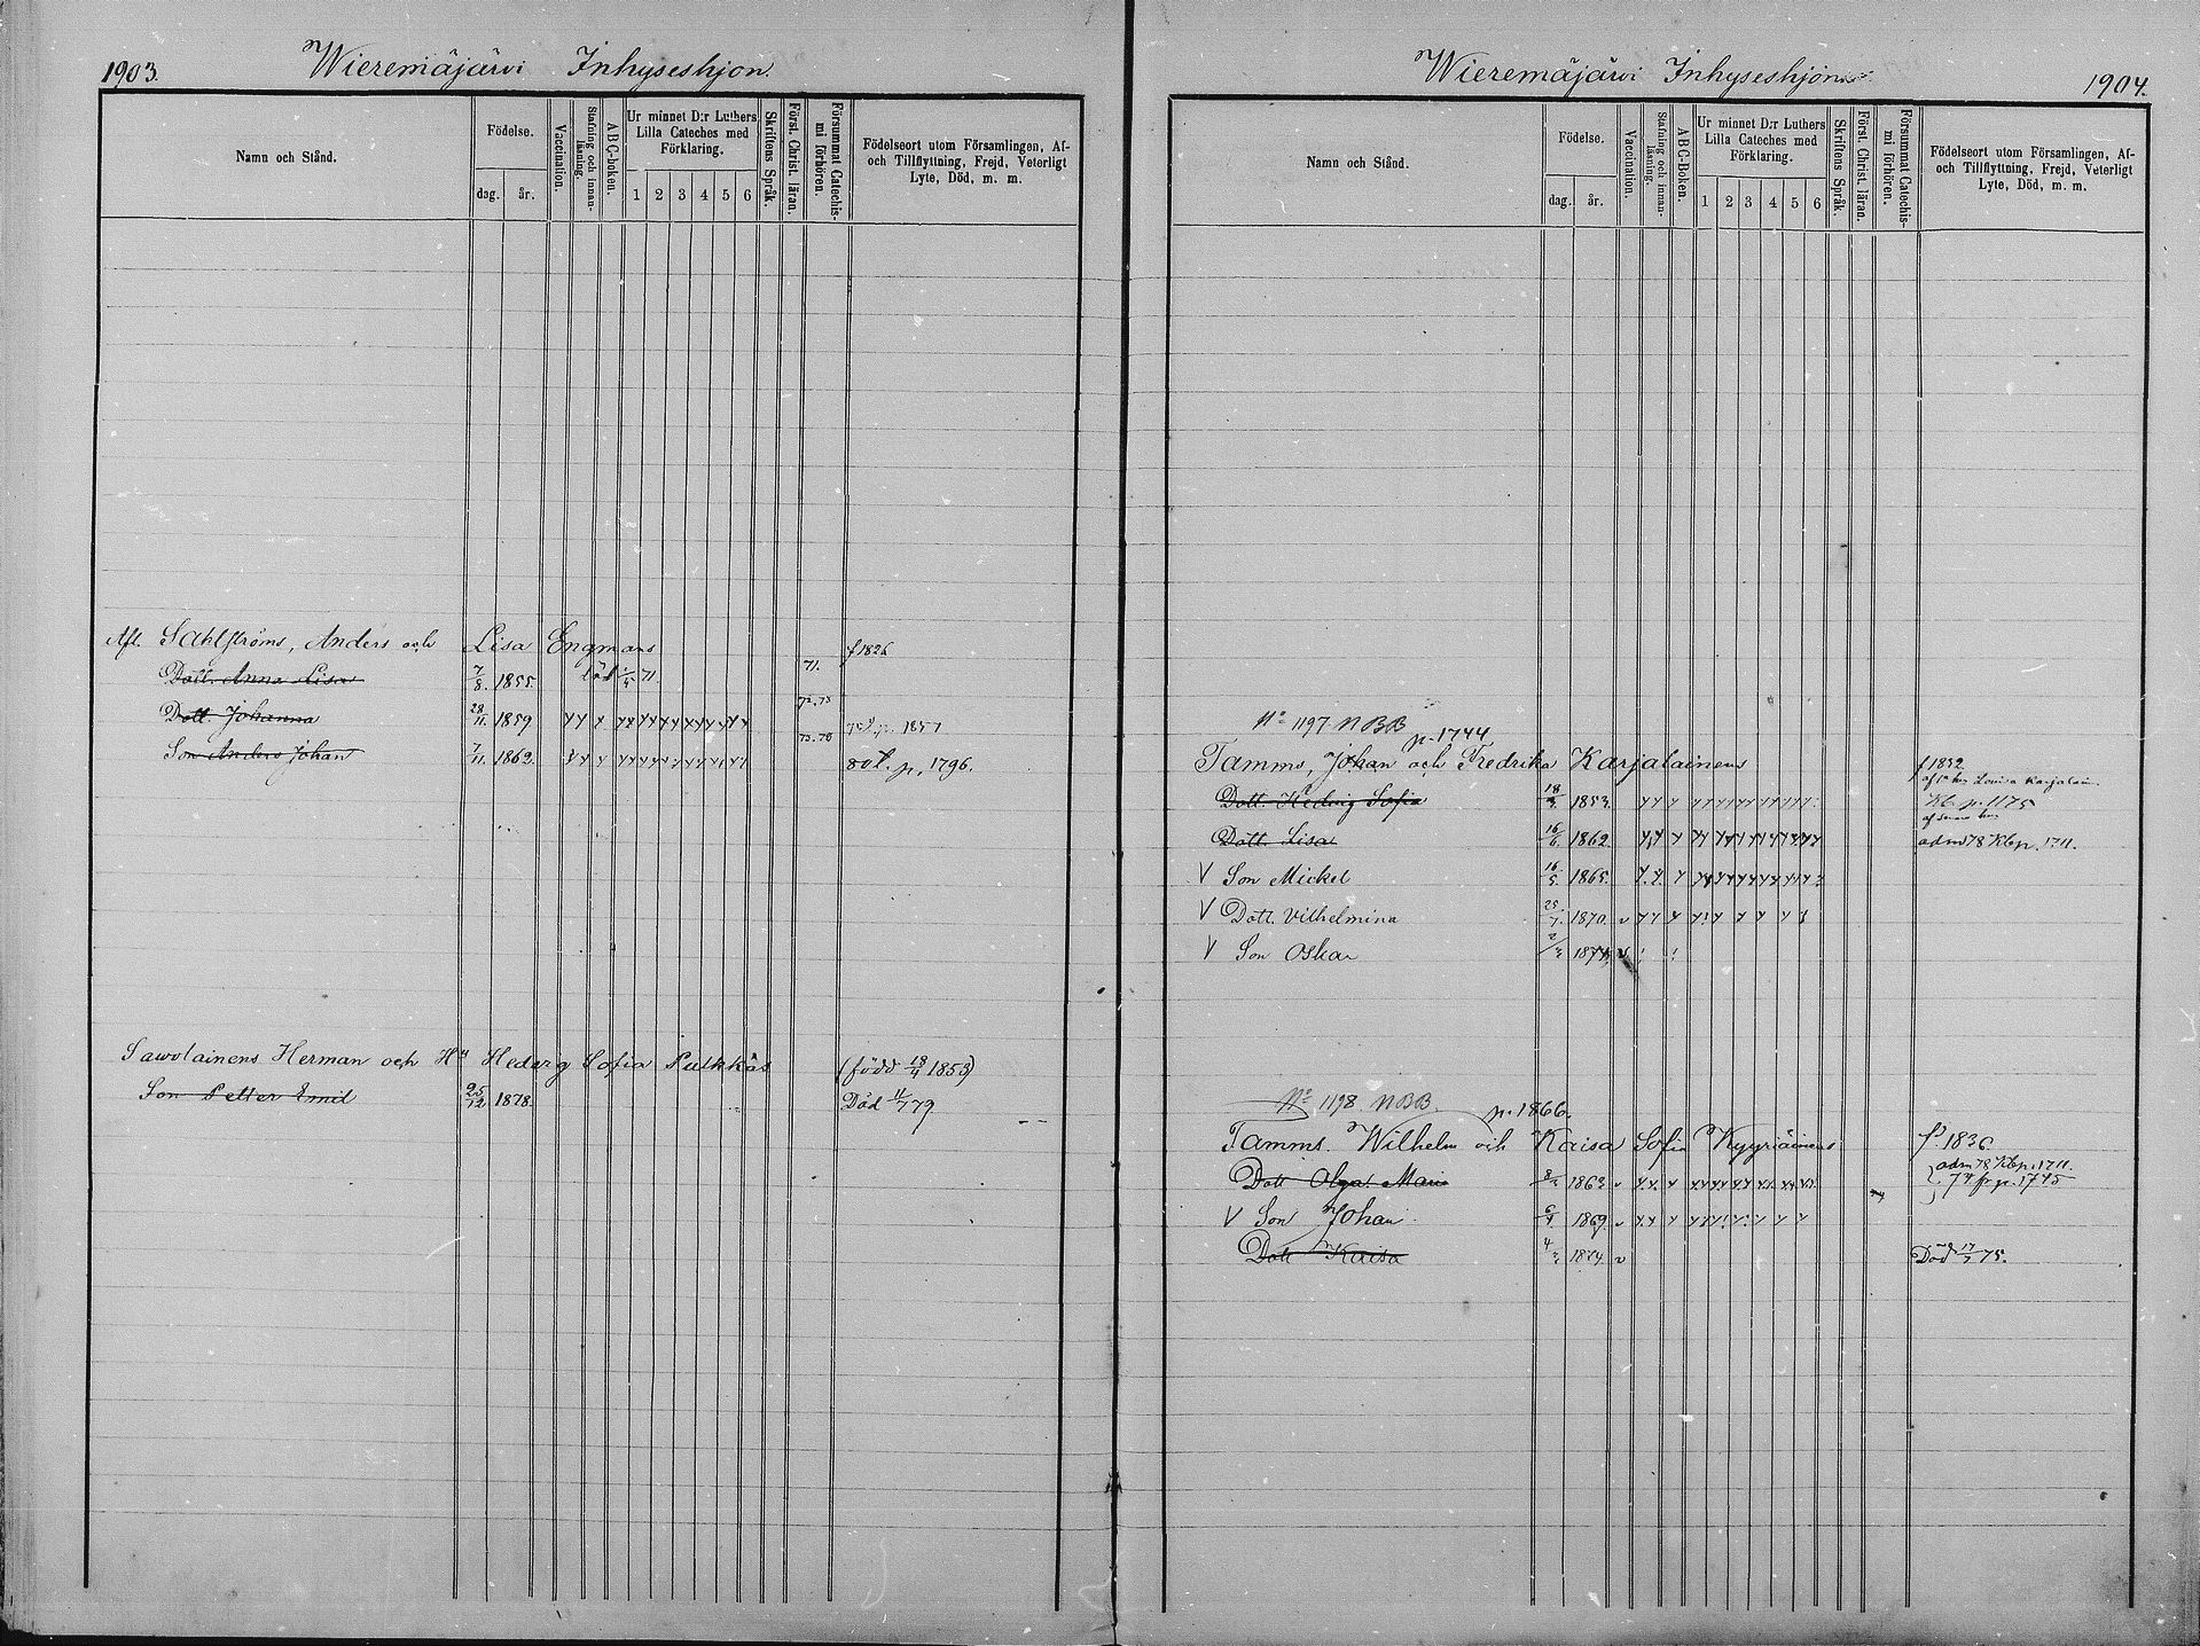 1903.
Wieremäjärvi Inhyseshjon.
Namn och Stånd.
Födelse.
dag.
år.
Vaccination.
Stafning och innanläsning.
ABC-boken.
Ur minnet D:r Luthers Lilla Cateches med Förklaring.
1 2 3 4 5 6
Skriftens Språk.
Först. Christ. läran.
Försummat Catechismi förhören.
Födelseort utom Församlingen, Af- och Tillflyttning, Frejd, Veterligt Lyte, Död, m. m.
Afl. Sahlströms, Anders och Lisa Engmans f 1826
Dott. Anna Lisa 7/8. 1855. 71. 71.
Dott. Johanna 28/11. 1859 72.73 p. 1857
Son Anders Johan 7/11. 1862. 75.76 80 t. p. 1796.
Sawolainens Herman och Hu Hedvig Sofia Pulkkäs (född 18/4 1853)
Son Petter Emil 25/12 1878. Död 11/7 79
Wieremäjärvi Inhyseshjon
1904.
Namn och Stånd.
Födelse.
dag.
år.
Vaccination.
Stafning och innanläsning.
ABC-Boken.
Ur minnet D:r Luthers Lilla Cateches med Förklaring.
1 2 3 4 5 6
Skriftens Språk.
Först. Christ. läran.
Försummat Catechismi förhören.
Födelseort utom Församlingen, Af- och Tillflyttning, Frejd, Veterligt Lyte, Död, m. m.
No 1197 NBB
p. 1744
Tamms, Johan och Fredrika Karjalainens f 1832
af 1a hu Lovisa Karjalain.
Dott. Hedvig Sofia 18 1853. Kb. p. 1175
af senare hu
Dott. Lisa 16/6. 1862. adm 78 Kbp. 1711.
V Son Mickel 16/5. 1865.
V Dott. Vilhelmina 25/7. 1870. v
V Son Oskar 2/3 1874. v
No 1198 NBB. p. 1866.
Tamms. Wilhelm och Kaisa Sofia Kyyriäinens f. 1836
adm 78 Kbp. 1711.
Dott Olga Maria 1863 74 fr p. 1745
V Son Johan 6/4. 1869. v
Dott Kaisa 4/3 1874 v Död 17/7 75.